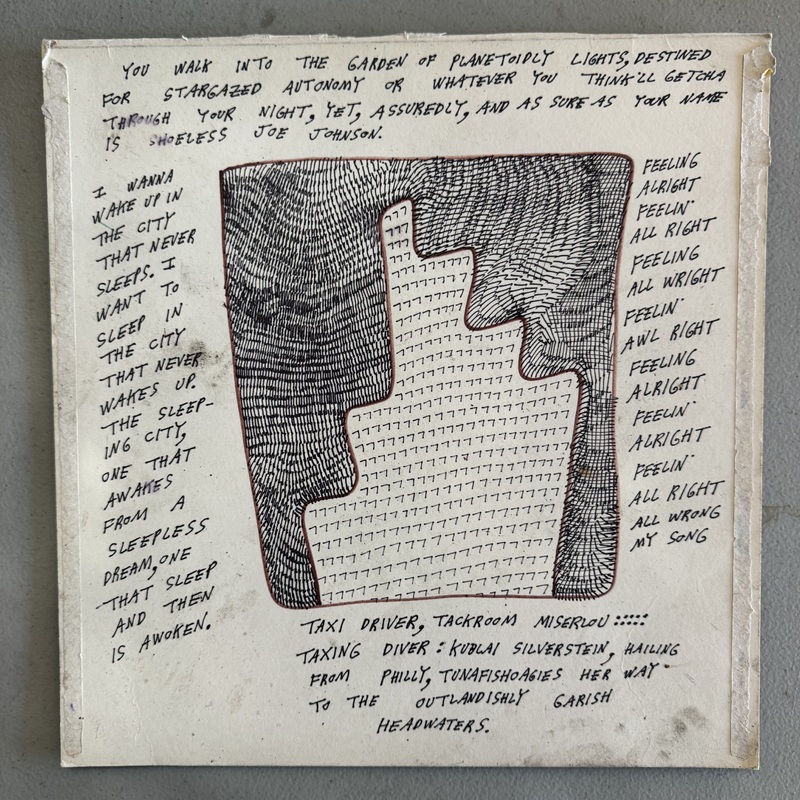 YOU WALK INTO THE GARDEN OF PLANETOIDLY LIGHTS, DESTINED
FOR STARGAZED AUTONOMY OR WHATEVER YOU THINK'LL GETCHA
THROUGH YOUR NIGHT, YET, ASSUREDLY, AND AS SURE AS YOUR NAME
IS SHOELESS JOE JOHNSON.
I WANNA
WAKE UP IN
THE CITY
THAT NEVER
SLEEPS. I
WANT TO
SLEEP IN
THE CITY
THAT NEVER
WAKES UP.
THE SLEEP-
ING CITY,
ONE THAT
AWAKES
FROM A
SLEEPLESS
DREAM, ONE
THAT SLEEP
AND THEN
IS AWOKEN.
FEELING
ALRIGHT
FEELIN'
ALL RIGHT
FEELING
ALL WRIGHT
FEELIN'
AWL RIGHT
FEELING
ALRIGHT
FEELIN'
ALRIGHT
FEELIN'
ALL RIGHT
ALL WRONG
MY SONG
TAXI DRIVER, TACKROOM MISERLOU :::::
TAXING DIVER : KUBLAI SILVERSTEIN, HAILING
FROM PHILLY, TUNAFISHOAGIES HER WAY
TO THE OUTLANDISHLY GARISH
HEADWATERS.